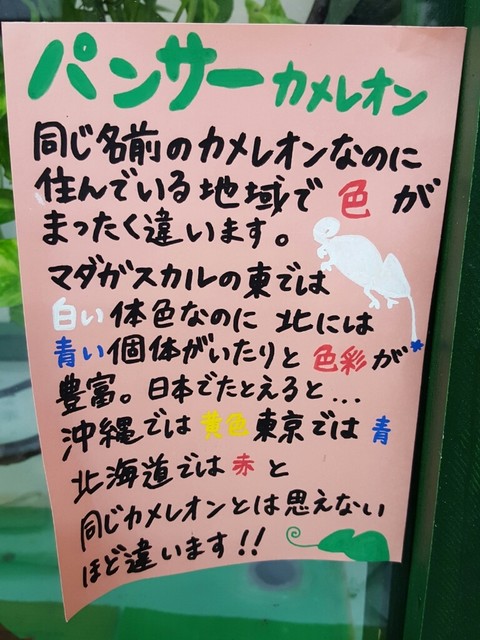 パンサーカメレオン
同じ名前のカメレオンなのに
住んでいる地域で色が
まったく違います。
マダガスカルの東では
白い体色なのに北には
青い個体がいたりと色彩が
豊富。日本でたとえると...
沖縄では黄色東京では青
北海道では赤と
同じカメレオンとは思えない
ほど違います!!